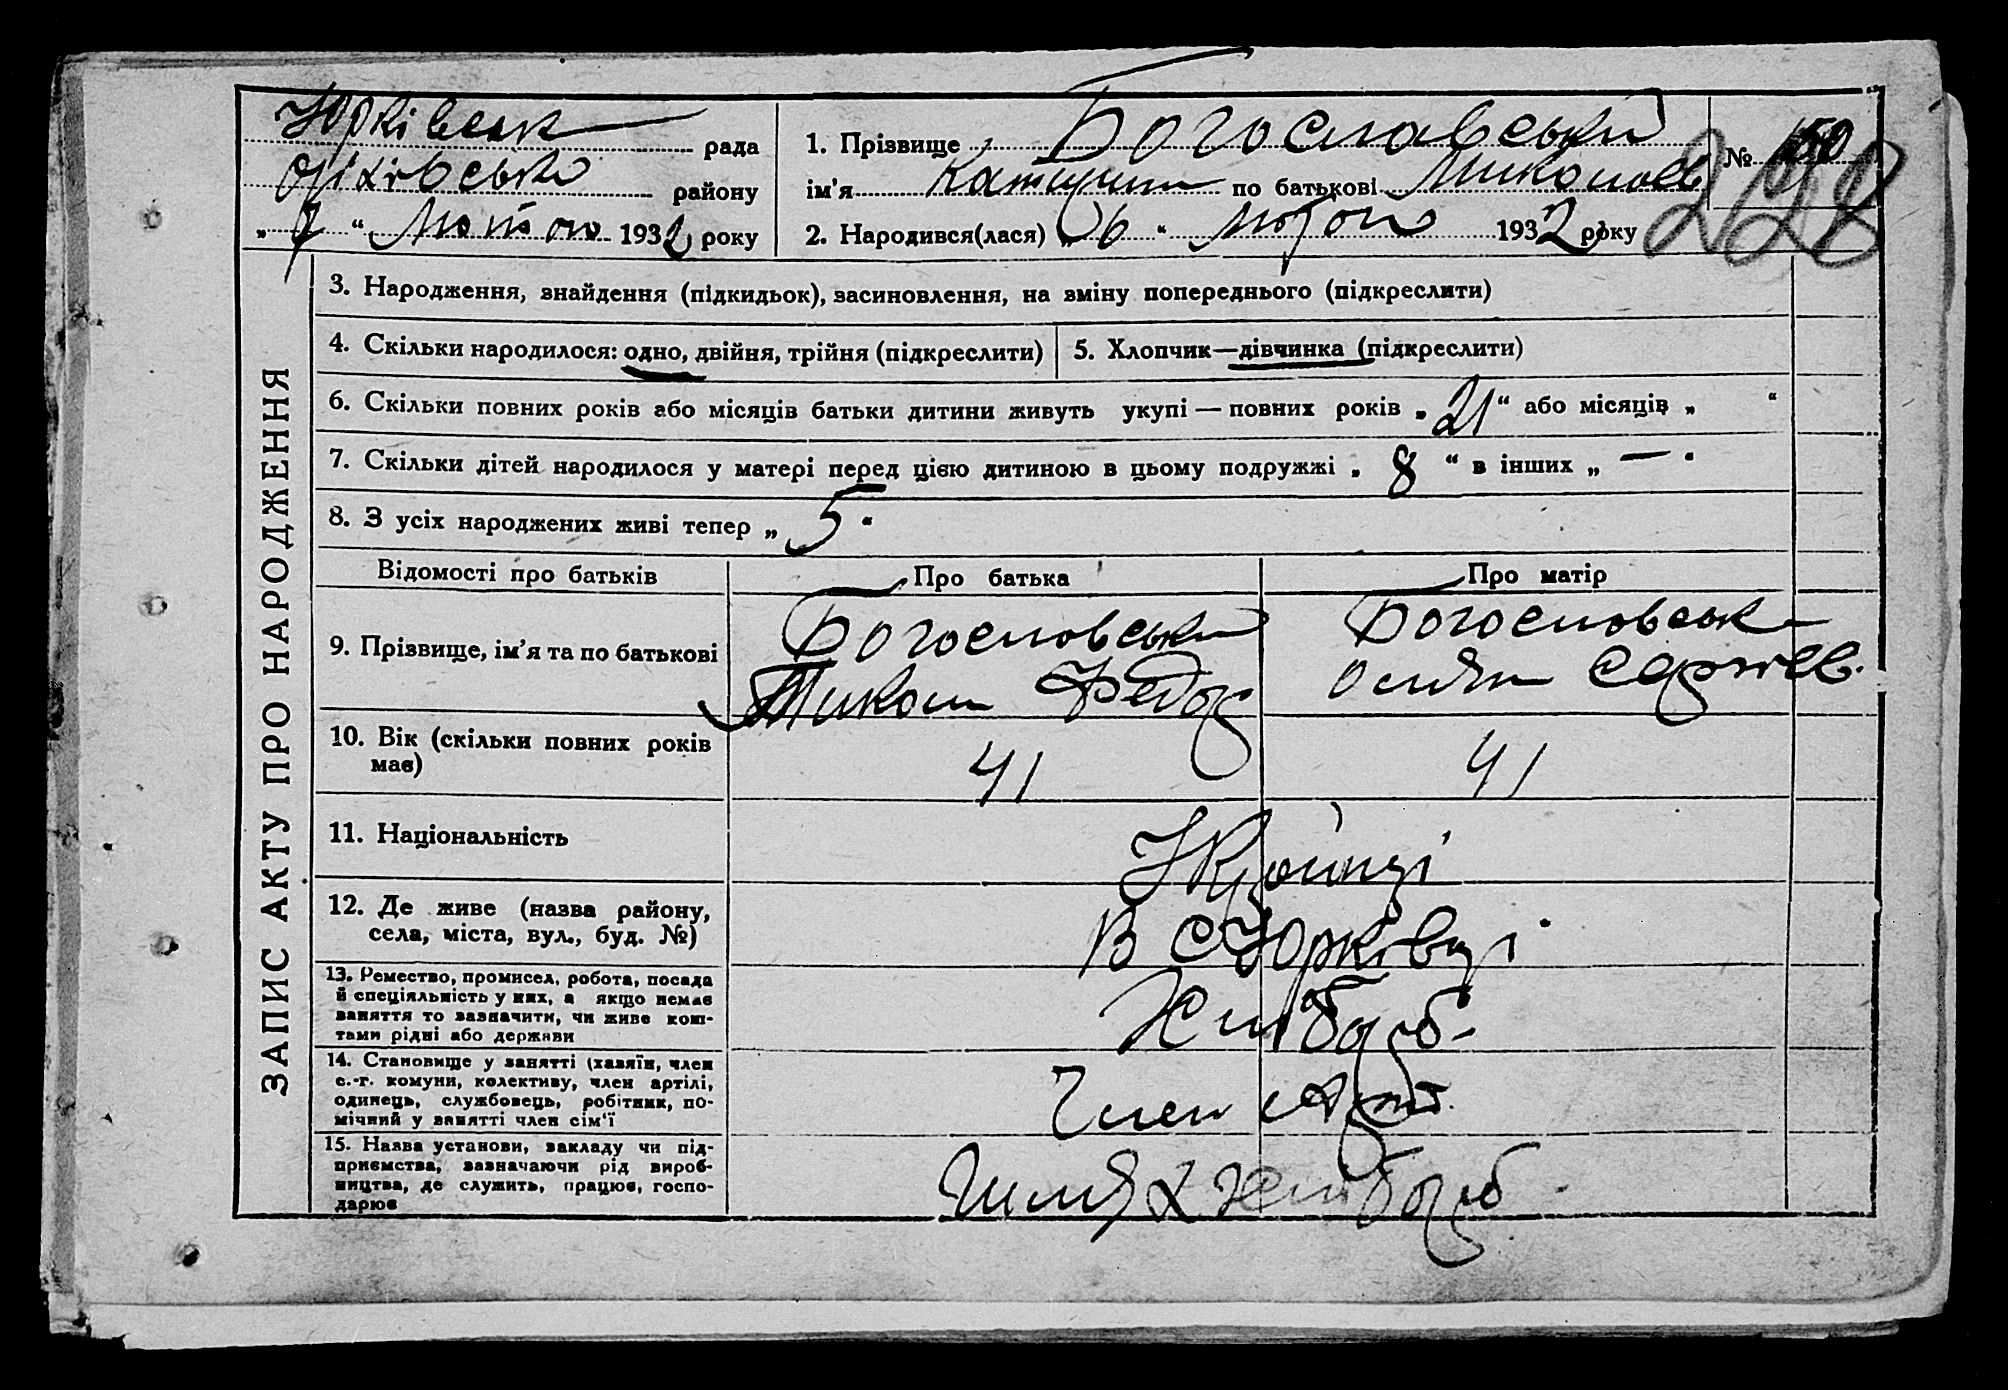 Юрківськ рада
Оріхівсько району
„ 7 “ Лютого 1932 року
1. Прізвище Богославськи
ім’я Катерин по батькові Миколаєв
2. Народився(лася) „ 6 “ Лютого 1932 року
№ 228
ЗАПИС АКТУ ПРО НАРОДЖЕННЯ
3. Народження, знайдення (підкидьок), засиновлення, на зміну попереднього (підкреслити)
4. Скільки народилося: одно, двійня, трійня (підкреслити)
5. Хлопчик—дівчинка (підкреслити)
6. Скільки повних років або місяців батьки дитини живуть укупі — повних років „ 21 “ або місяців „ “
7. Скільки дітей народилося у матері перед цією дитиною в цьому подружжі „ 8 “ в інших „ — “
8. З усіх народжених живі тепер „ 5 “
Відомості про батьків
Про батька
Про матір
9. Прізвище, ім’я та по батькові
Богословськи
Микола Федор
Богословськ
Сергіев.
10. Вік (скільки повних років
має)
41
41
11. Національність
Українці
12. Де живе (назва району,
села, міста, вул., буд. №)
В с Юрківці
13. Ремество, промисел, робота, посада
й спеціяльність у них, а якщо немає
заняття то зазначити, чи живе кош-
тами рідні або держави
Хлібороб.
14. Становище у занятті (хазяїн, член
с.-г. комуни, колективу, член артілі,
одинець, службовець, робітник, по-
мічний у занятті член сім’ї
Член Арт.
15. Назва установи, закладу чи під-
приємства, зазначаючи рід вироб-
ництва, де служить, працює, госпо-
дарює
Шлях Хлібороб